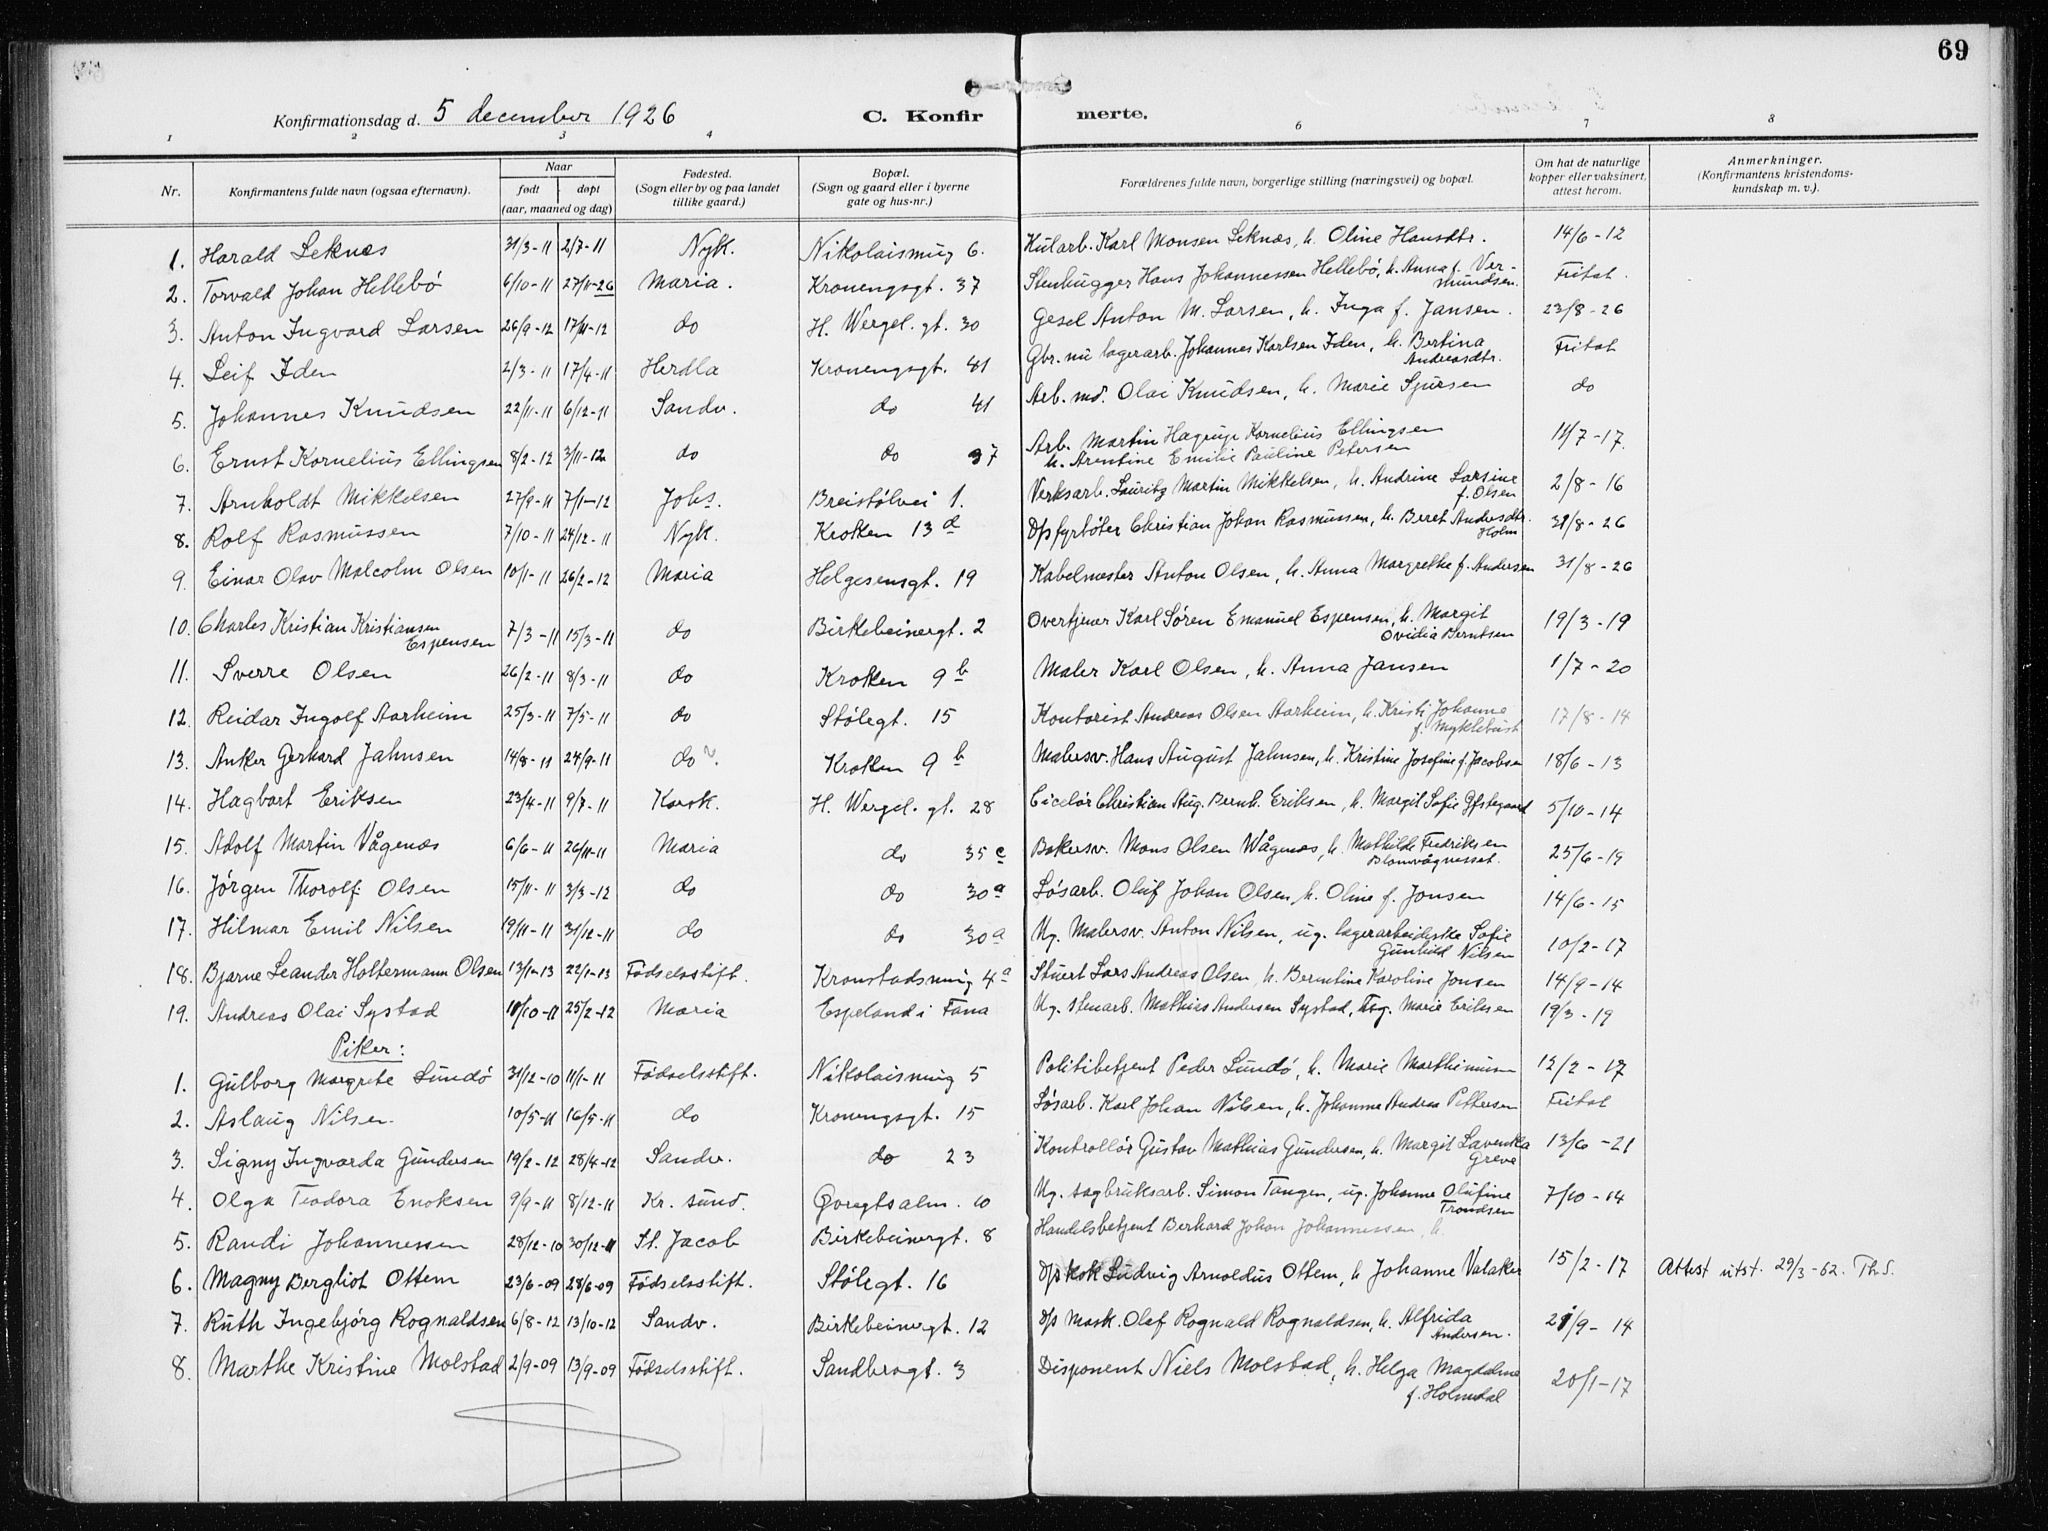 69
Konfirmationsdag d. 5 december 1926 C. Konfirmerte.
1 2 3 4 6 7 8
Nr. Konfirmantens fulde navn (ogsaa efternavn). Naar født døpt (aar, maaned og dag) Fødested. (Sogn eller by og paa landet tillike gaard.) Bopæl. (Sogn og gaard eller i byerne gate og hus-nr.) Forældrenes fulde navn, borgerlige stilling (næringsvei) og bopæl. Om hat de naturlige kopper eller vaksinert, attest herom. Anmerkninger. (Konfirmantens kristendomskundskap m. v.).
1. Harald Leknæs 31/3-11 2/7-11 Nyk. Nikolaismug 6. Kularb. Karl Monsen Leknæs, h. Oline Hansdtr. 14/6-12
2. Torvald Johan Hellebö 6/10-11 27/11-26 Maria. Kronengsgt. 37 Stenhugger Hans Johannessen Hellebö, h. Anna f. Vermundsen. Fritat.
3. Anton Ingvard Larsen 26/9-12 17/11-12 do H. Wergel. gt. 30 Gesel Anton M. Larsen, h. Inga f. Jansen. 23/8-26
4. Leif Iden 2/3-11 17/4-11 Herdla Kronengsgt. 41 Gbr. nu lagerarb. Johannes Karlsen Iden, h. Bertina Andreasdtr. Fritat
5. Johannes Knudsen 22/11-11 6/12-11 Sandv. do 41 Arb. md. Olai Knudsen, h. Marie Sjursen do
6. Ernst Kornelius Ellingsen 8/2-12 3/11-12 do do 37 Arb. Martin Hagrup Kornelius Ellingsen h. Arentine Emilie Pauline Petersen 11/7-17.
7. Arnholdt Mikkelsen 27/9-11 7/1-12 Johs. Breistølvei 1. Verksarb. Lauritz Martin Mikkelsen, h. Andrine Larsine f. Olsen 2/8-16
8. Rolf Rasmussen 7/10-11 24/12-11 Nyk. Kroken 13d D/s fyrbøter Christian Johan Rasmussen, h. Beret Andersdtr. Holm 31/8-26
9. Einar Olav Malcolm Olsen 10/1-11 26/2-12 Maria Helgesensgt. 19 Kabelmester Anton Olsen, h. Anna Margrethe f. Andersen 31/8-26
10. Charles Kristian Kristiansen Espensen 7/3-11 15/3-11 do Birkebeinergt. 2 Overtjener Karl Søren Emanuel Espensen, h. Margit Ovidia Berntsen 19/3-19
11. Sverre Olsen 26/2-11 8/3-11 do Kroken 9b Maler Karl Olsen, h. Anna Jansen 1/7-20
12. Reidar Ingolf Aarheim 25/3-11 7/5-11 do Stølegt. 15 Kontorist Andreas Olsen Aarheim, h. Kristi Johanne f. Myklebust 17/8-14
13. Anker Gerhard Jahnsen 14/8-11 24/9-11 do Kroken 9b Malersv. Hans August Jahnsen, h. Kristine Josefine f. Jacobsen 18/6-13
14. Hagbart Eriksen 23/4-11 9/7-11 Korsk. H. Wergel. gt. 28 Cicelør Christian Aug. Bernh. Eriksen, h. Margit Sofie 5/10-14
15. Adolf Martin Vågenæs 6/6-11 26/11-11 Maria do 35c Bakersv. Mons Olsen Wågenæs, h. Mathilde Fredriksen Blomvågnesset. 25/6-19
16. Jørgen Thorolf Olsen 15/11-11 3/3-12 do do 30a Løsarb. Oluf Johan Olsen, h. Oline f. Jonsen 14/6-15
17. Hilmar Emil Nilsen 19/11-11 31/12-11 do do 30a Ug. Malersv. Anton Nilsen, ug. lagerarbeiderske Sofie Gunhild Nilsen 10/2-17
18. Bjarne Leander Holtermann Olsen 13/1-13 22/1-13 Fødselsstift. Kronstadsmug 4a Stuert Lars Andreas Olsen, h. Berntine Karoline Jonsen 14/9-14
19. Andreas Olai Systad 11/10-11 25/2-12 Maria Espeland i Fana Ug. stenarb. Mathias Andersen Systad, Marie Eriksen 19/3-19
Piker:
1. Gulborg Margrete Sundö 31/12-10 11/1-11 Fødselsstift. Nikolaismug 5 Politibetjent Peder Sundö, h. Marie Marthinusen 12/2-17
2. Aslaug Nilsen 10/5-11 16/5-11 do Kronengsgt. 15 Løsarb. Karl Johan Nilsen, h. Johanne Andrea Pettersen Fritat
3. Signy Ingvarda Gundersen 19/2-12 28/4-12 Sandv. do 23 Kontrollør Gustav Mathias Gundersen, h. Margit Laventa Greve 13/6-21
4. Olga Teodora Enoksen 9/9-11 8/12-11 Kr. sund. Øvregtsalm. 10 Ug. sagbruksarb. Simon Tangen, ug. Johanne Olufine Trondsen 7/10-14
5. Randi Johannessen 28/12-10 30/12-11 St. Jacob Birkebeinergt. 8 Handelsbetjent Berhard Johan Johannessen, h.
6. Magny Bergliot Ottem 23/6-09 28/6-09 Fødselsstift. Stølegt. 16 D/s kok Ludvig Arnoldus Ottem, h. Johanne Valaker 15/2-17 Attest utst. 29/3-62. Th.S.
7. Ruth Ingebjørg Rognaldsen 6/8-12 13/10-12 Sandv. Birkebeinergt. 12 D/s Mask. Olaf Rognald Rognaldsen, h. Alfrida Andersen. 21/9-14
8. Marthe Kristine Molstad 2/9-09 13/9-09 Fødselsstift. Sandbrogt. 3 Disponent Niels Molstad, h. Helga Magdalene f. Holmdal 20/1-17